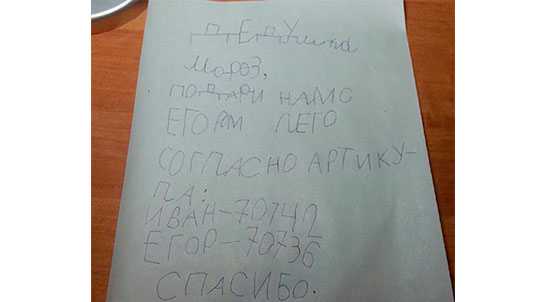 ДЕДУшка
Мороз,
ПОДАРИ НАМ С
ЕГОРМ ЛЕГО
СОГЛАСНО АРТИКУ-
ЛА:
ИВАН-70742
ЕГОР-70736
СПАСИБО.